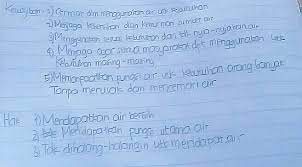 Kewajiban : 1) Cermat dlm menggunakan air utk kebutuhan
2) Menjaga kebersihan dan kemurnian sumber air
3) Menggunakan sesuai kebutuhan dan tdk nya-nyiakan air
4) Menjaga agar semua masyarakat dpt menggunakan utk
kebutuhan masing-masing
5) Memanfaatkan fungsi air utk kebutuhan orang banyak
Tanpa merusak dan mencemari air
Hak : 1) Mendapatkan air bersih
2) Mendapatkan fungsi utama air
3) Tdk dihalang-halangin utk mendapat air